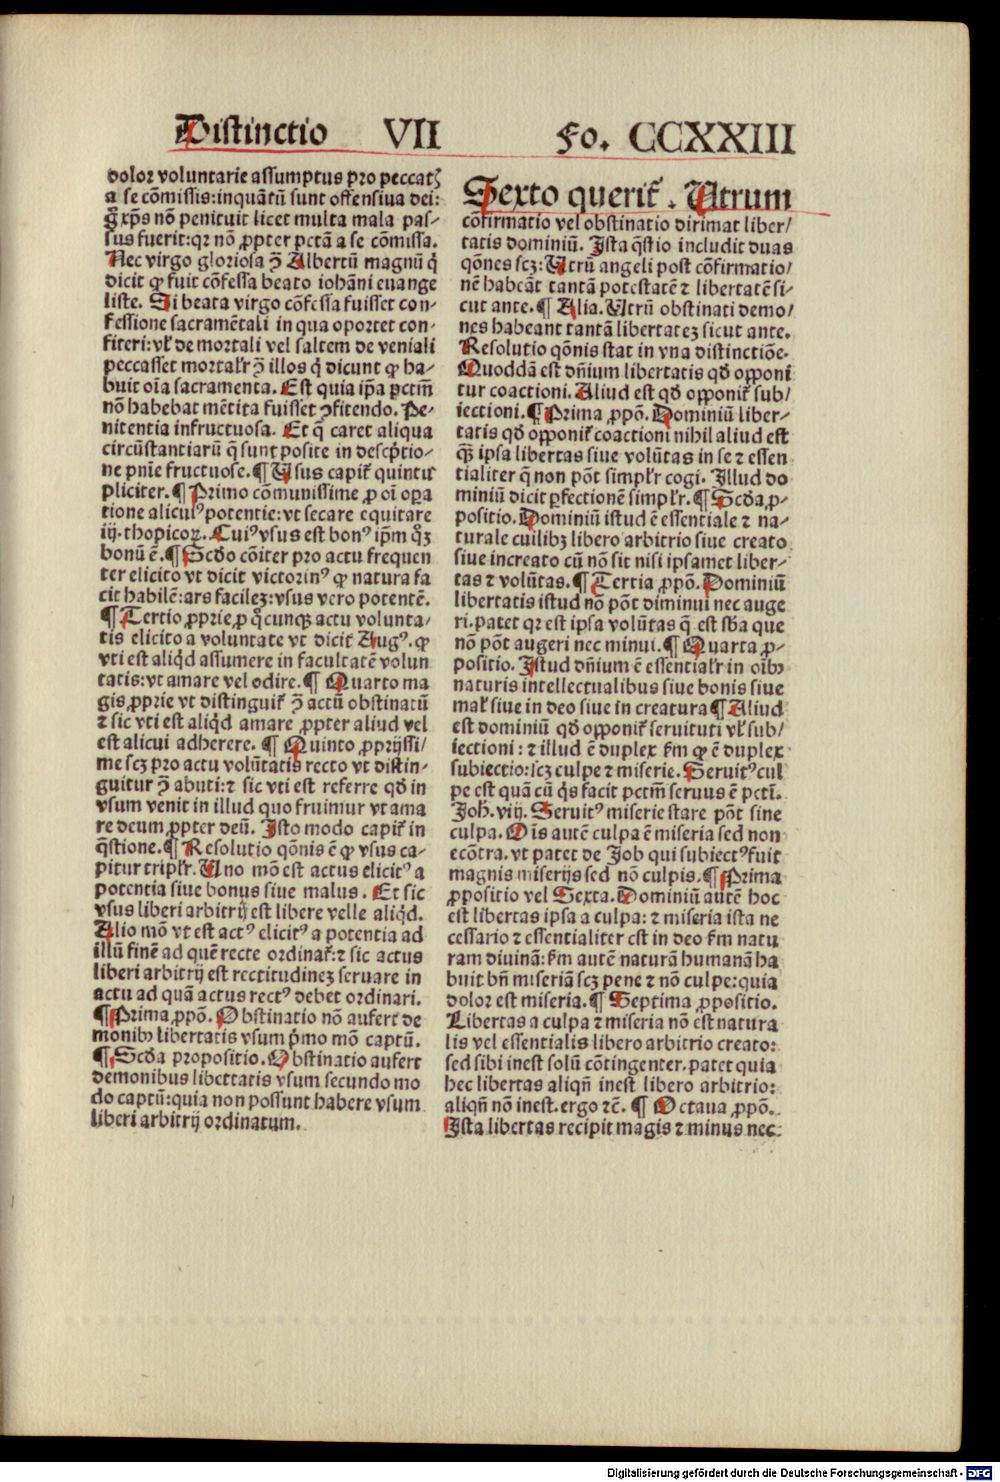 Distinctio VII Fo. CCXXIII
dolor voluntarie assumptus pro peccatꝫ
a se cōmissis: inquātū sunt offensiua dei:
q̄ xp̄s nō penituit licet multa mala pas⸗
sus fuerit: qꝛ nō ꝓpter pctā a se cōmissa.
Nec virgo gloriosa ꝯ̄ Albertū magnū q̇
dicit ꝙ fuit cōfessa beato iohāni euange
liste. Si beata virgo cōfessa fuisset con⸗
fessione sacramētali in qua oportet con⸗
fiteri: vl̓ de mortali vel saltem de veniali
peccasset mortal̓r ꝯ̄ illos q̇ dicunt ꝙ ha⸗
buit oīa sacramenta. Est quia ip̄a pctm̄
nō habebat mētita fuisset ꝯfitendo. Pe⸗
nitentia infructuosa. Et q̄ caret aliqua
circūstantiarū q̄ sunt posite in descp̄tio⸗
ne pnīe fructuose. ¶ Usus capit̓ quintu
pliciter. ¶ Primo cōmunissime ꝓ oī oꝑa
tione alicuiꝰ potentie: vt secare equitare
iij. thopicoꝝ. Cuiꝰ vsus est bonꝰ ip̄m qͦꝫ
bonū ē. ¶ Scd̓o cōiter pro actu frequen
ter elicito vt dicit victorinꝰ ꝙ natura fa
cit habilē: ars facileꝫ: vsus vero potentē.
¶ Tertio ꝓprie ꝓ q̊cunqꝫ actu volunta⸗
tis elicito a voluntate vt dicit Augꝰ. ꝙ
vti est aliq̇d assumere in facultatē volun
tatis: vt amare vel odire. ¶ Quarto ma
gis ꝓprie vt distinguit̓ ꝯ̄ actū obstinatū
⁊ sic vti est aliq̇d amare ꝓpter aliud vel
est alicui adherere. ¶ Quinto ꝓprijssi/
me scꝫ pro actu volūtatis recto vt distin⸗
guitur ꝯ̄ abuti: ⁊ sic vti est referre qd̓ in
vsum venit in illud quo fruimur vt ama
re deum ꝓpter deū. Isto modo capit̓ in
q̄stione. ¶ Resolutio qōnis ē ꝙ vsus ca⸗
pitur tripl̓r. Uno mō est actus elicitꝰ a
potentia siue bonus siue malus. Et sic
vsus liberi arbitrij est libere velle aliq̇d.
Alio mō vt est actꝰ elicitꝰ a potentia ad
illū finē ad quē recte ordinat̓: ⁊ sic actus
liberi arbitrij est rectitudineꝫ seruare in
actu ad quā actus rectꝰ debet ordinari.
¶ Prima ꝓpō. Obstinatio nō aufert de
monibꝫ libertatis vsum p̓mo mō captū.
¶ Scd̓a propositio. Obstinatio aufert
demonibus libertatis vsum secundo mo
do captū: quia non possunt habere vsum
liberi arbitrij ordinatum.
Sexto querit̓. Utrum
cōfirmatio vel obstinatio dirimat liber/
tatis dominiū. Ista q̄stio includit duas
qōnes scꝫ: Utrū angeli post cōfirmatio/
nē habeāt tantā potestatē ⁊ libertatē si⸗
cut ante. ¶ Alia. Utrū obstinati demo/
nes habeant tantā libertateꝫ sicut ante.
Resolutio qōnis stat in vna distinctiōe.
Quoddā est dn̄ium libertatis qd̓ opponi
tur coactioni. Aliud est qd̓ opponit̓ sub/
iectioni. ¶ Prima ꝓpō. Dominiū liber⸗
tatis qd̓ opponit̓ coactioni nihil aliud est
qꝫ̄ ipsa libertas siue volūtas in se ⁊ essen
tialiter q̄ non pōt simpl̓r cogi. Illud do
miniū dicit ꝑfectionē simpl̓r. ¶ Scd̓a ꝓ⸗
positio. Dominiū istud ē essentiale ⁊ na⸗
turale cuilibꝫ libero arbitrio siue creato
siue increato cū nō sit nisi ipsamet liber⸗
tas ⁊ volūtas. ¶ Tertia ꝓpō. Dominiū
libertatis istud nō pōt diminui nec auge
ri. patet qꝛ est ipsa volūtas q̄ est sb̓a que
nō pōt augeri nec minui. ¶ Quarta ꝓ⸗
positio. Istud dn̄ium ē essential̓r in oībꝫ
naturis intellectualibus siue bonis siue
mal̓ siue in deo siue in creatura ¶ Aliud
est dominiū qd̓ opponit̓ seruituti vl̓ sub/
iectioni: ⁊ illud ē duplex fm̄ ꝙ ē duplex
subiectio: scꝫ culpe ⁊ miserie. Seruitꝰ cul
pe est quā cū q̇s facit pctm̄ seruus ē pcti̅.
Joh̄. viij. Seruitꝰ miserie stare pōt sine
culpa. Oīs autē culpa ē miseria sed non
ecōtra. vt patet de Job qui subiectꝰ fuit
magnis miserijs sed nō culpis. ¶ Prima
ꝓpositio vel Sexta. Dominiū autē hoc
est libertas ipsa a culpa: ⁊ miseria ista ne
cessario ⁊ essentialiter est in deo fm̄ natu
ram diuinā: fm̄ autē naturā humanā ha
buit bn̄ miseriā scꝫ pene ⁊ nō culpe: quia
dolor est miseria. ¶ Septima ꝓpositio.
Libertas a culpa ⁊ miseria nō est natura
lis vel essentialis libero arbitrio creato:
sed sibi inest solū cōtingenter. patet quia
hec libertas aliqn̄ inest libero arbitrio:
aliqn̄ nō inest. ergo ⁊c̄. ¶ Octaua ꝓpō.
Ista libertas recipit magis ⁊ minus nec
Digitalisierung gefördert durch die Deutsche Forschungsgemeinschaft - DFG